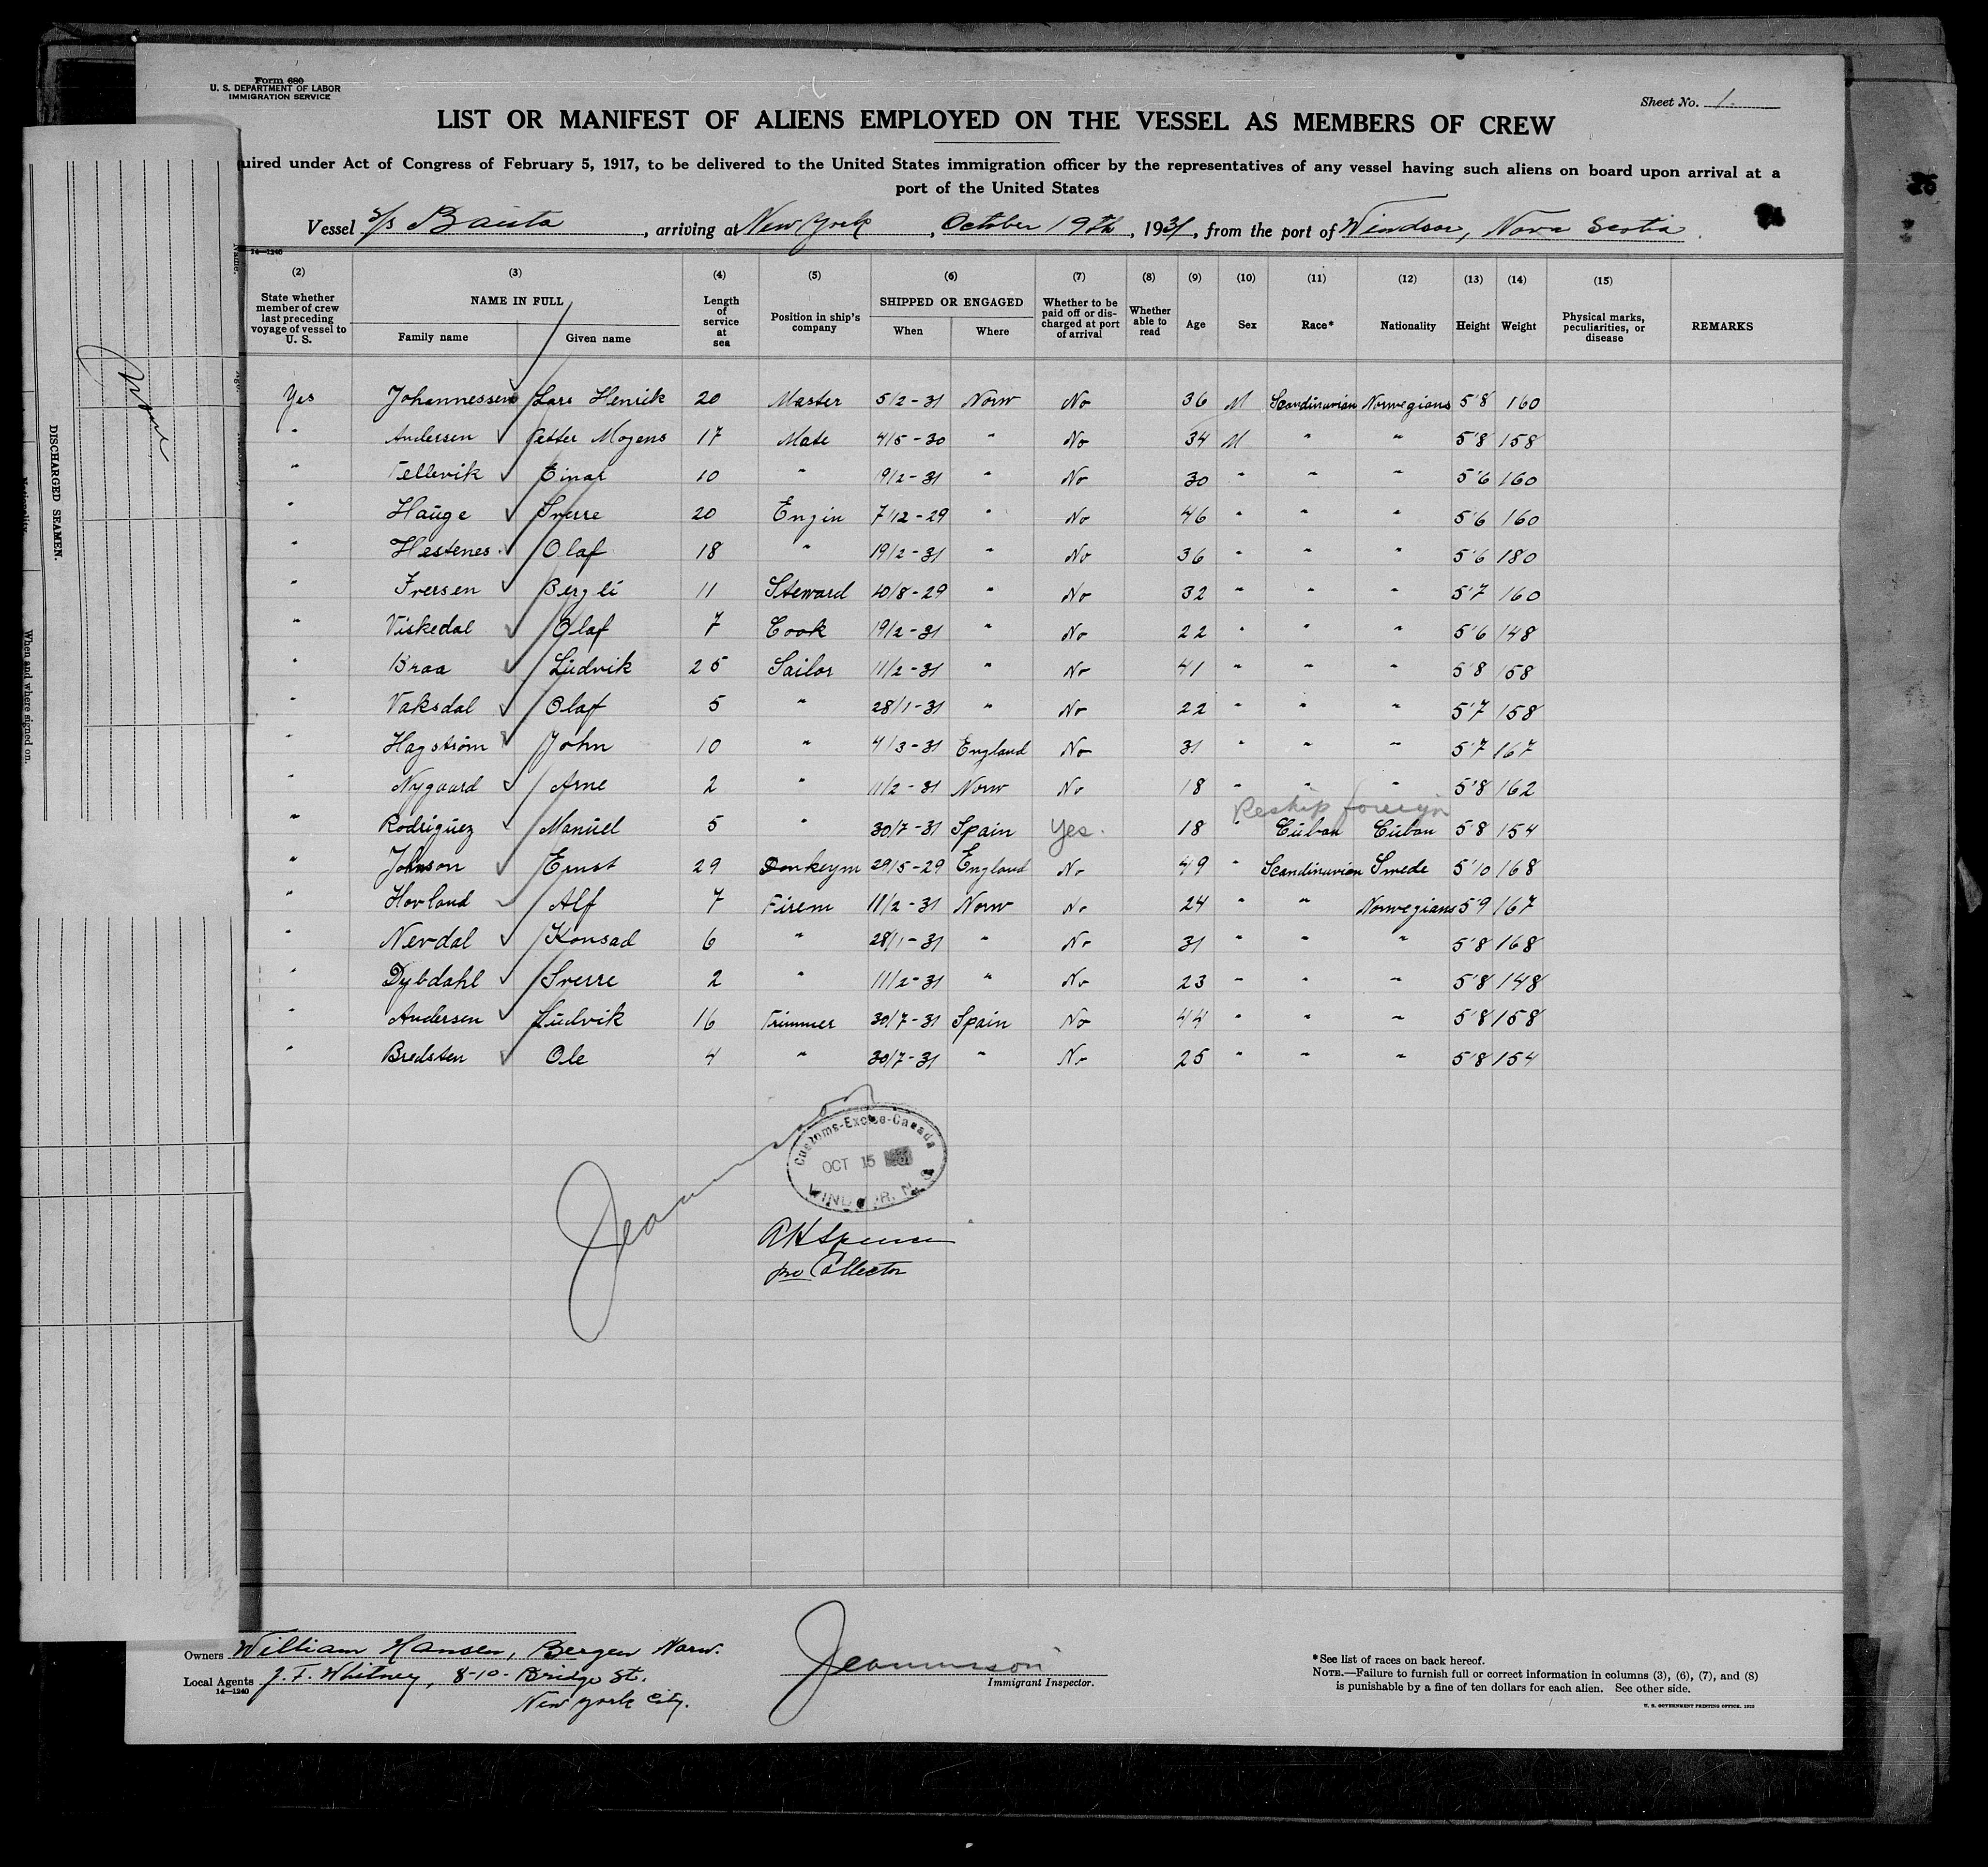 Form 680
U. S. DEPARTMENT OF LABOR
IMMIGRATION SERVICE
Sheet No. 1.
LIST OR MANIFEST OF ALIENS EMPLOYED ON THE VESSEL AS MEMBERS OF CREW
uired under Act of Congress of February 5, 1917, to be delivered to the United States immigration officer by the representatives of any vessel having such aliens on board upon arrival at a
port of the United States
Vessel S/s Bauta, arriving at New York, October 19th, 1931, from the port of Windsor, Nova Scotia.
14—1240
(2) (3) (4) (5) (6) (7) (8) (9) (10) (11) (12) (13) (14) (15)
State whether member of crew last preceding voyage of vessel to U. S. | NAME IN FULL | Family name | Given name | Length of service at sea | Position in ship's company | SHIPPED OR ENGAGED | When | Where | Whether to be paid off or discharged at port of arrival | Whether able to read | Age | Sex | Race* | Nationality | Height | Weight | Physical marks, peculiarities, or disease | REMARKS
Yes Johannessen Lars Henrik 20 Master 5/2-31 Norw No 36 M Scandinavian Norwegians 5'8 160
" Andersen Petter Mogens 17 Mate 4/5-30 " No 34 M " " 5'8 158
" Tellevik Einar 10 " 19/2-31 " No 30 " " " 5'6 160
" Hauge Sverre 20 Engin 7/12-29 " No 46 " " " 5'6 160
" Hestenes Olaf 18 " 19/2-31 " No 36 " " " 5'6 180
" Iversen Bergli 11 Steward 10/8-29 " No 32 " " " 5'7 160
" Viskedal Olaf 7 Cook 19/2-31 " No 22 " " " 5'6 148
" Braa Ludvik 25 Sailor 11/2-31 " No 41 " " " 5'8 158
" Vaksdal Olaf 5 " 28/1-31 " No 22 " " " 5'7 158
" Hagström John 10 " 4/3-31 England No 31 " " " 5'7 167
" Nygaard Arne 2 " 11/2-31 Norw No 18 " " " 5'8 162
Reship foreign
" Rodriguez Manuel 5 " 30/7-31 Spain Yes. 18 " Cuban Cuban 5'8 154
" Johnson Ernst 29 Donkeym 29/5-29 England No 49 " Scandinavian Swede 5'10 168
" Hovland Alf 7 Firem 11/2-31 Norw No 24 " " Norwegians 5'9 167
" Nevdal Konrad 6 " 28/1-31 " No 31 " " " 5'8 168
" Dybdahl Sverre 2 " 11/2-31 " No 23 " " " 5'8 148
" Andersen Ludvik 16 Trimmer 30/7-31 Spain No 44 " " " 5'8 158
" Bredsten Ole 4 " 30/7-31 " No 25 " " " 5'8 154
Customs-Excise-Canada
OCT 15
WINDSOR, N. S.
pro Collector
Owners William Hansen, Bergen Norw.
Local Agents J. F. Whitney, 8-10- Bridge St.
14—1240
New York City.
Immigrant Inspector.
*See list of races on back hereof.
NOTE.—Failure to furnish full or correct information in columns (3), (6), (7), and (8)
is punishable by a fine of ten dollars for each alien. See other side.
DISCHARGED SEAMEN.
Name.
Age.
Nationality.
When and where signed on.